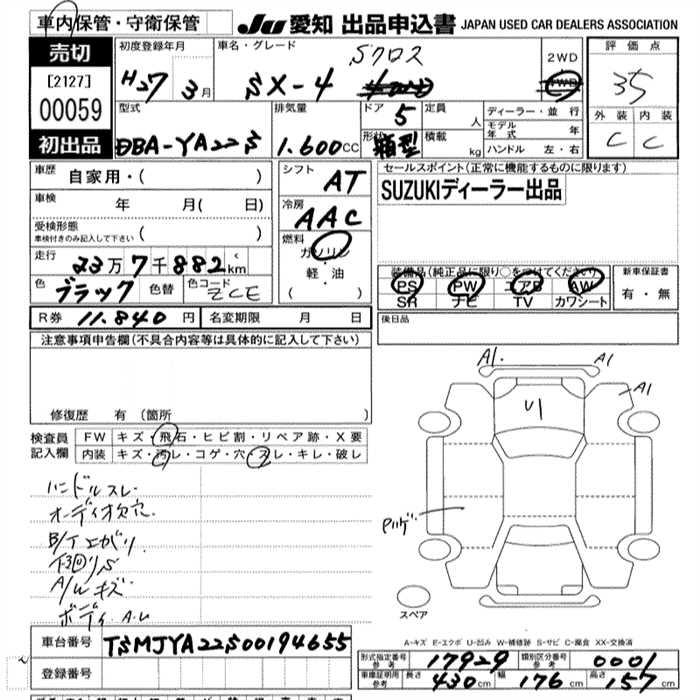 車内保管・守衛保管
JU 愛知 出品申込書 JAPAN USED CAR DEALERS ASSOCIATION
売切
[2127]
00059
初出品
初度登録年月
H27 3月
車名・グレード
SX-4 Sクロス
2WD
4WD
評価点
35
外装 内装
C C
型式
DBA-YA22S
排気量
1.600cc
ドア
5
形状
箱型
定員
人
積載
kg
ディーラー・並行
モデル年式 年
ハンドル 左・右
車歴
自家用・( )
車検
年 月( 日)
受検形態
車検付きのみ記入して下さい ( )
走行
23万7千882km
色 ブラック 色替 色コード ZCE
シフト
AT
冷房
AAC
燃料
ガソリン
・
軽・油
( )
セールスポイント(正常に機能するものに限ります)
SUZUKIディーラー出品
装備品(純正品に限り○をつけてください)
PS PW エアB AW
SR ナビ TV カワシート
新車保証書
有・無
R券 11.840円 名変期限 月 日
後日品
注意事項申告欄(不具合内容等は具体的に記入して下さい)
修復歴 有 (箇所 )
検査員記入欄
FW キズ・飛石・ヒビ割・リペア跡・X要
内装 キズ・汚レ・コゲ・穴・スレ・キレ・破レ
ハンドルスレ
オーディオ欠穴
下回りS
A/Wキズ
A1. A1
A1
U1
Pハゲ
スペア
A-キズ E-エクボ U-凹み W-補修跡 S-サビ C-腐食 XX-交換済
車台番号 TSMJYA22S00194655
登録番号
形式指定番号参考 17929 類別区分番号参考 0001
車庫証明用参考 長さ 430cm 幅 176cm 高さ 157cm